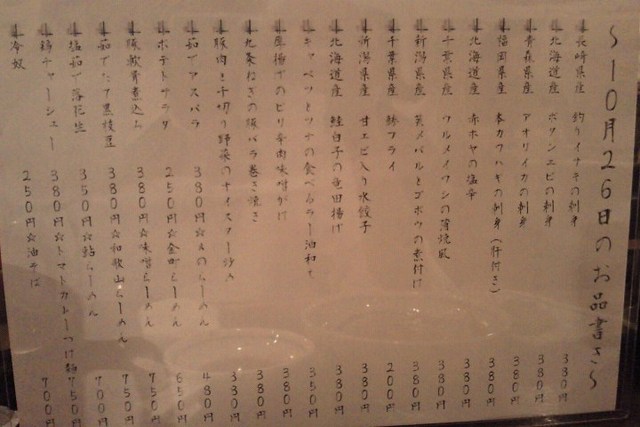 ～10月26日のお品書き～
長崎県産 釣りイサキの刺身 380円
北海道産 ボタンエビの刺身 380円
青森県産 アオリイカの刺身 380円
福岡県産 本カワハギの刺身(肝付き) 380円
北海道産 赤ホヤの塩辛 380円
千葉県産 ウルメイワシの蒲焼風 380円
新潟県産 黒メバルとゴボウの煮付け 380円
千葉県産 鯵フライ 200円
新潟県産 甘エビ入り水餃子 380円
北海道産 鮭白子の竜田揚げ 380円
キャベツとツナの食べるラー油和え 350円
厚揚げのピリ辛肉味噌がけ 380円
九条ねぎの豚バラ巻き焼き 380円
豚肉と千切り野菜のオイスター炒め 380円
茹でアスパラ 380円☆〆のらーめん 480円
ポテトサラダ 250円☆金町らーめん 650円
豚軟骨煮込み 380円☆味噌らーめん 750円
茹でたて黒枝豆 380円☆和歌山らーめん 750円
塩茹で落花生 350円☆鮎らーめん 700円
豚チャーシュー 380円☆トマトカレーつけ麺 750円
冷奴 250円☆油そば 700円